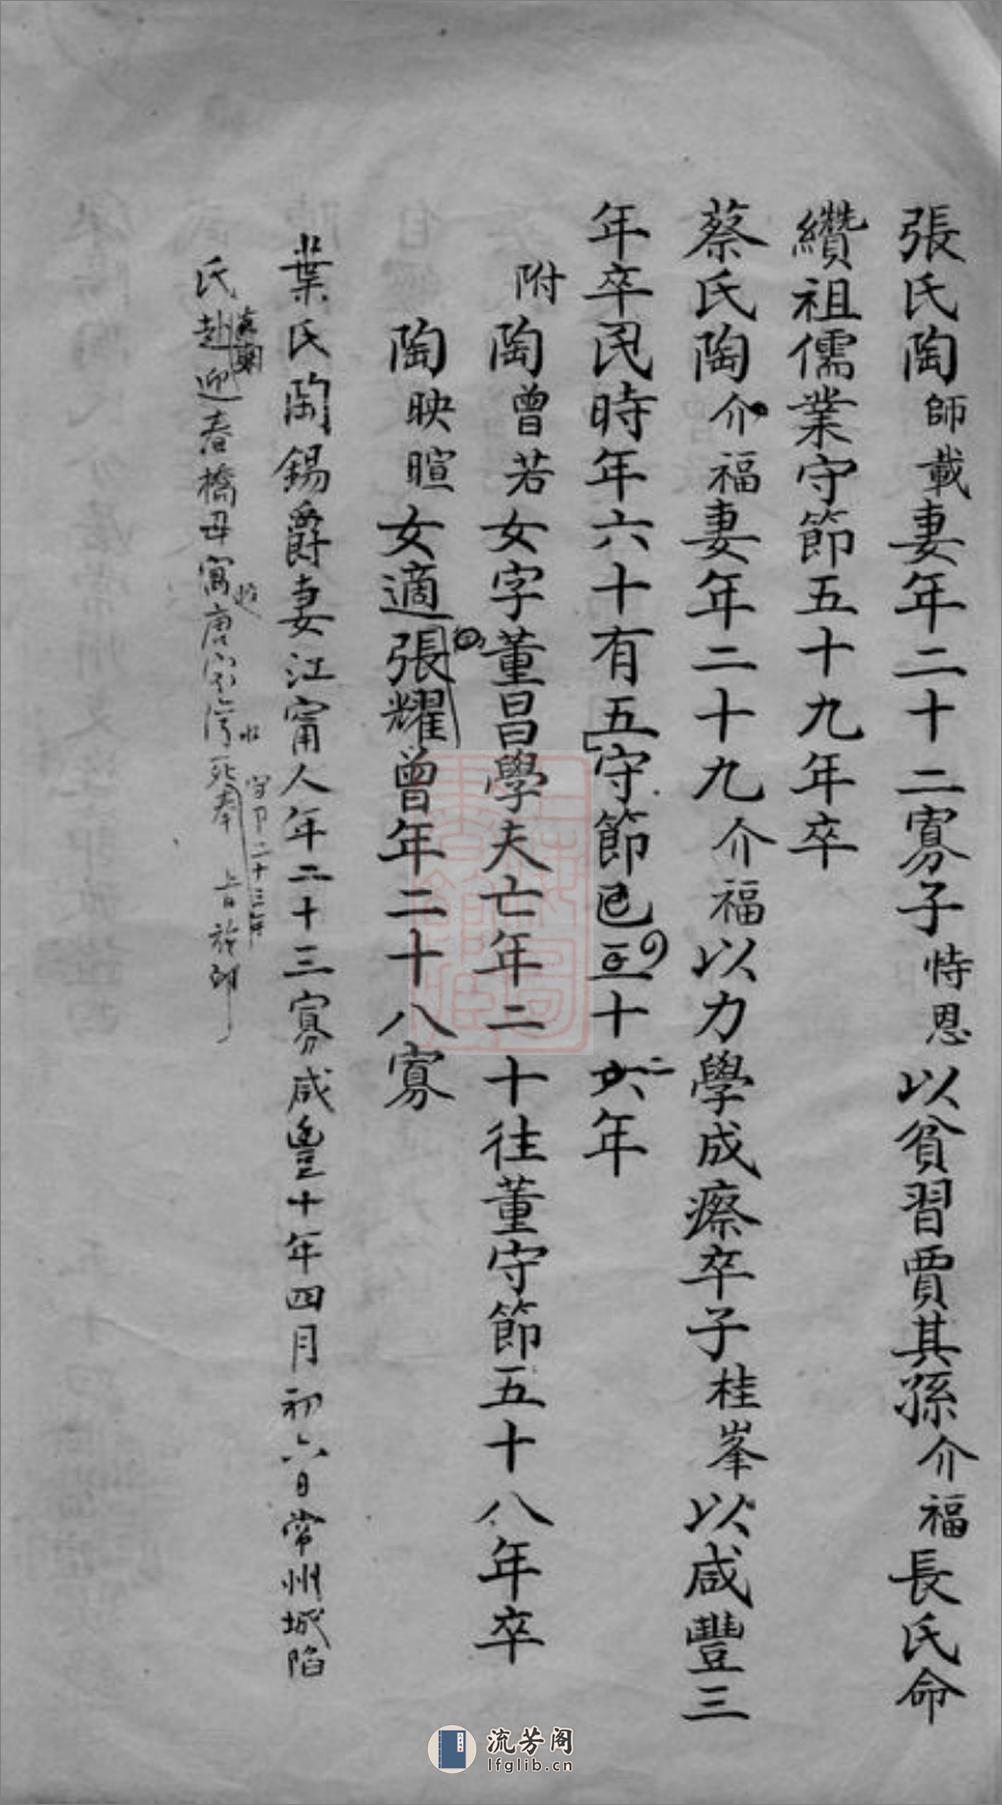 張氏陶師載妻年二十二寡子恃恩以貧習賈其孫介福長氏命
纘祖儒業守節五十九年卒
蔡氏陶介福妻年二十九介福以力學成瘵卒子桂峯以咸豐三
年卒氏時年六十有五守節已三十二年
附陶曾若女字董昌學夫亡年二十往董守節五十八年卒
陶映暄女適張耀曾年二十八寡
葉氏陶錫爵妻江甯人年二十三寡咸豐十年四月初六日常州城陷
氏赴迎春橋母寓唐家灣死奉旨旌卹
守節二十三年
流芳阁
lfglib.cn